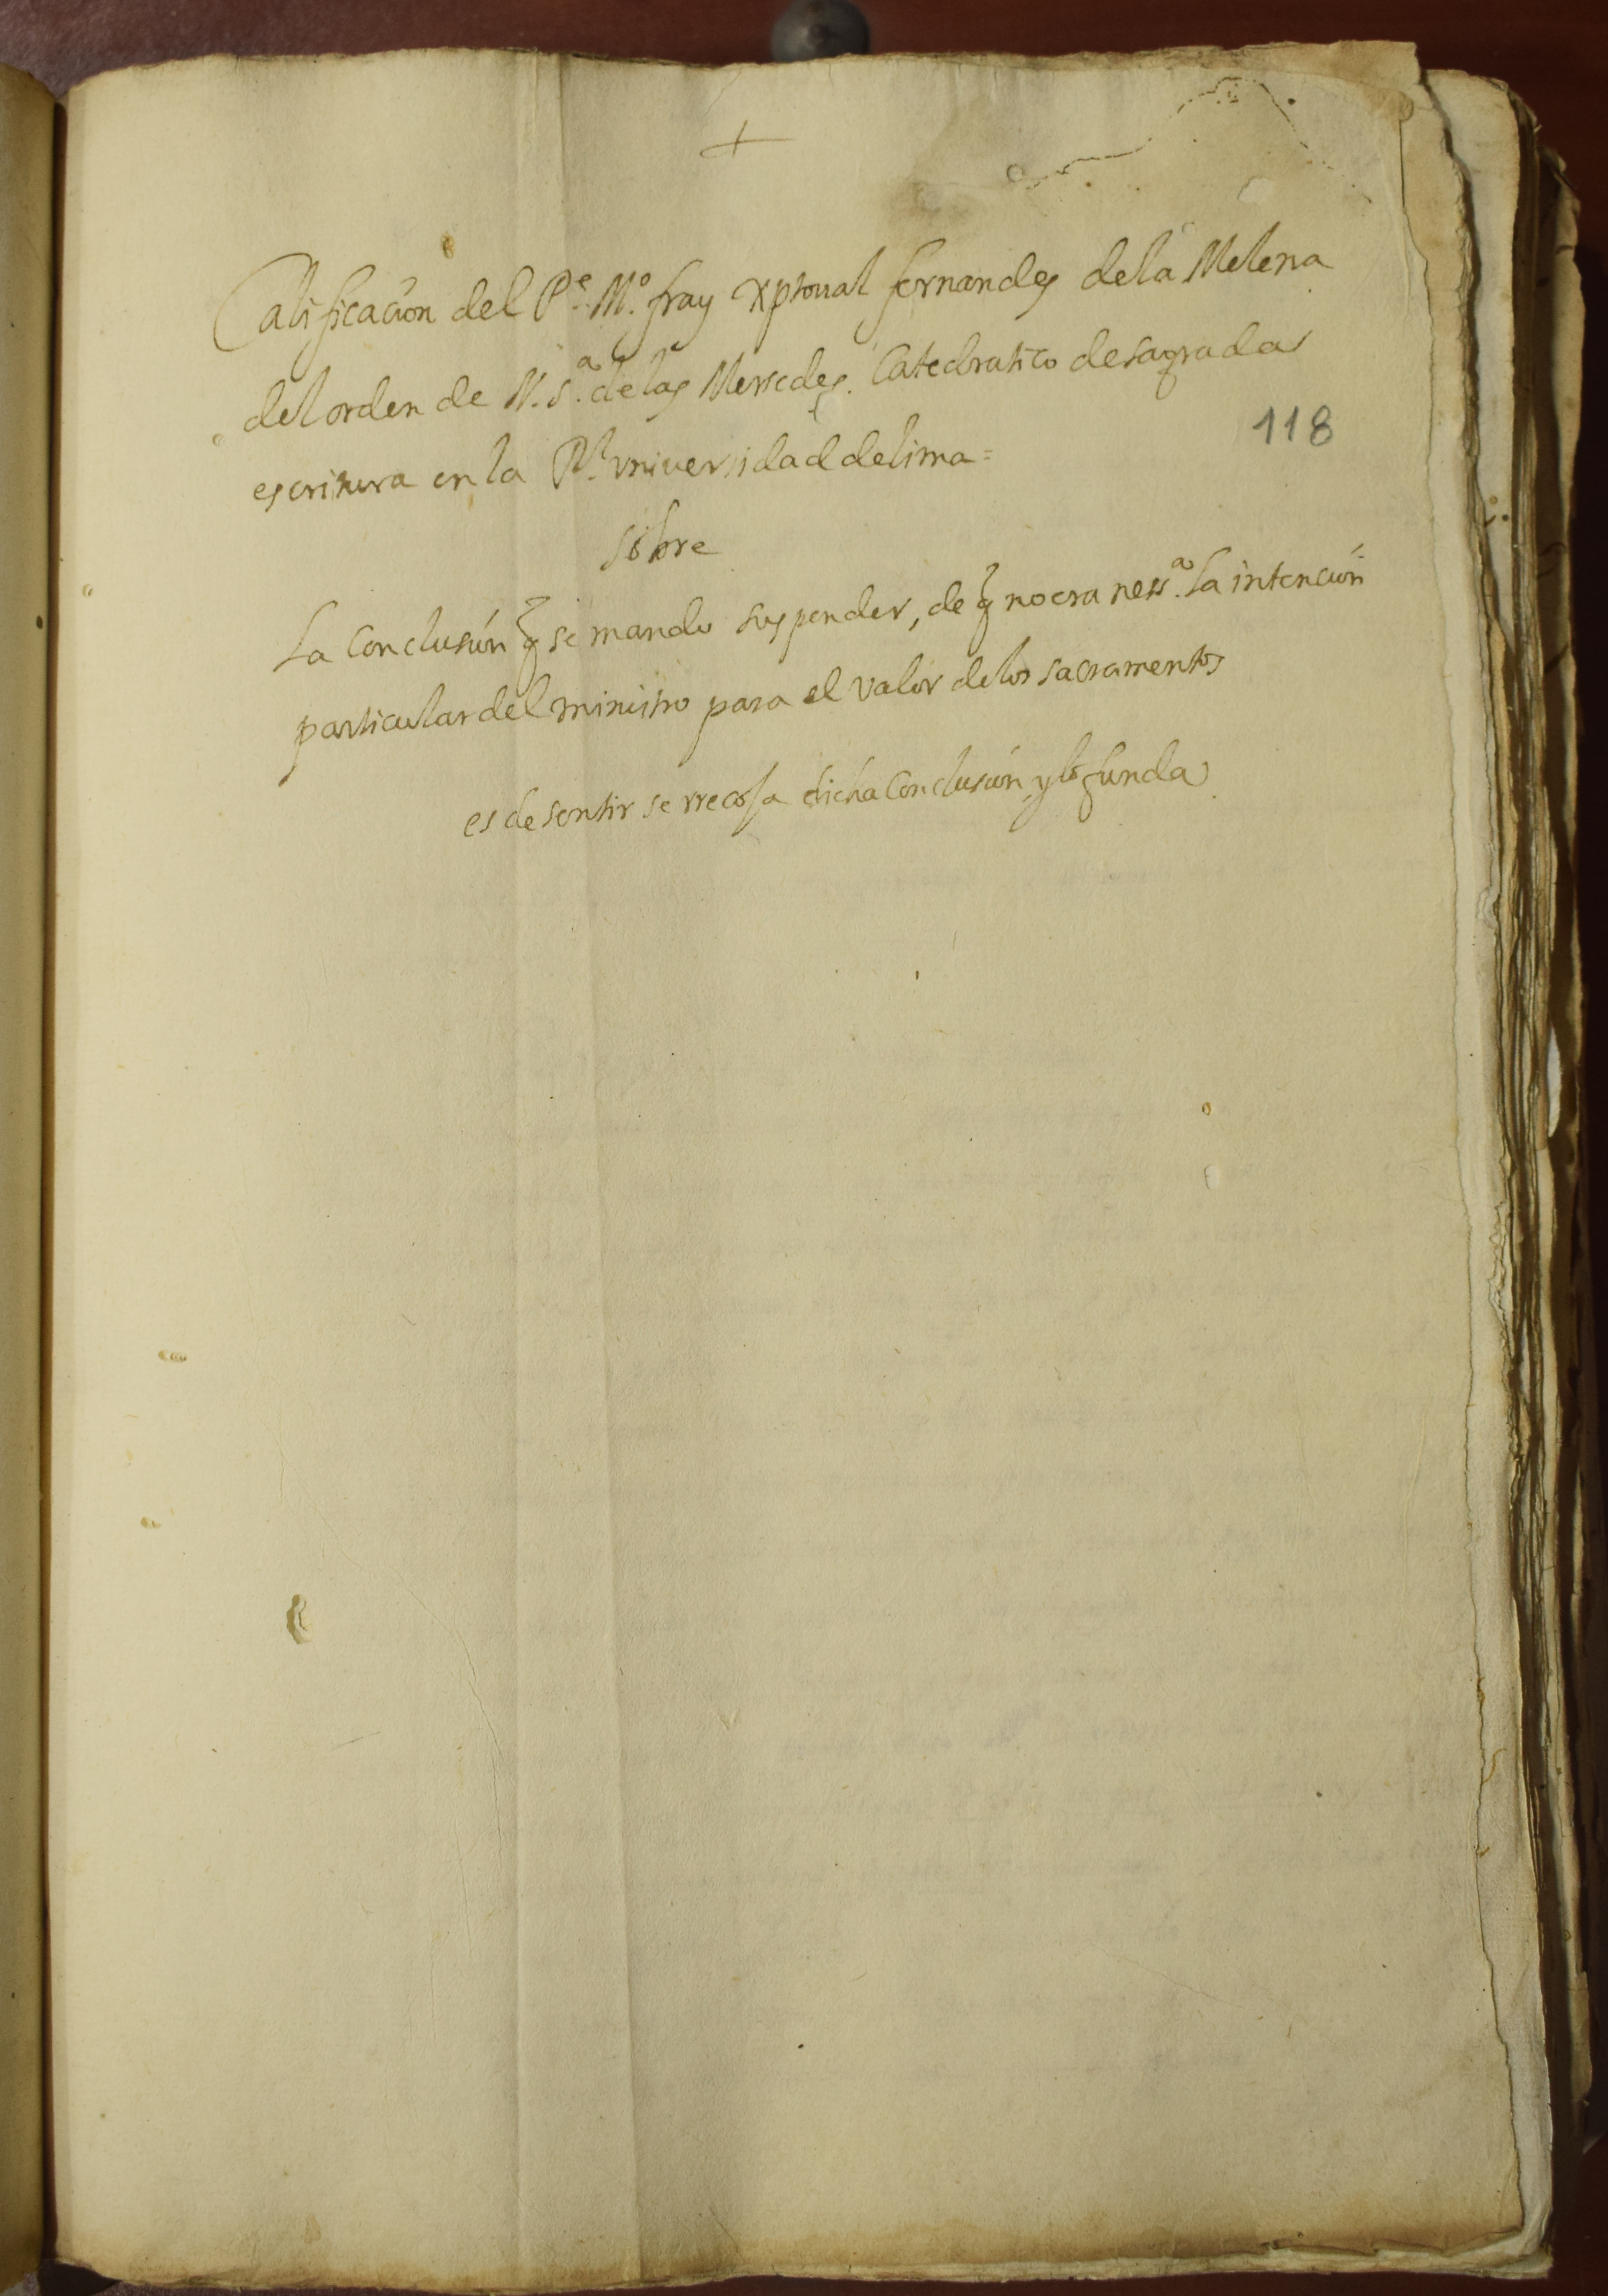 +
Calificacion del Pe. Mo. fray xptoual fernandes de la Melena
del orden de N. Sa. de las Mersedes. Catedratico de sagrada
118
escritura en la Rl. vniversidad de lima =
sobre
La Conclusión q̃ se mando suspender, de q̃ no era nessa. la intención
particular del ministro para el valor de los sacramentos
es de sentir se rrecoja dicha Conclusión y lo funda